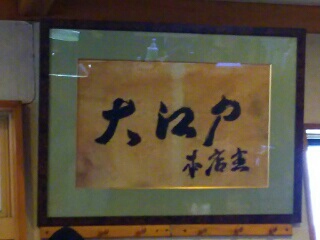 大江戸
本店主